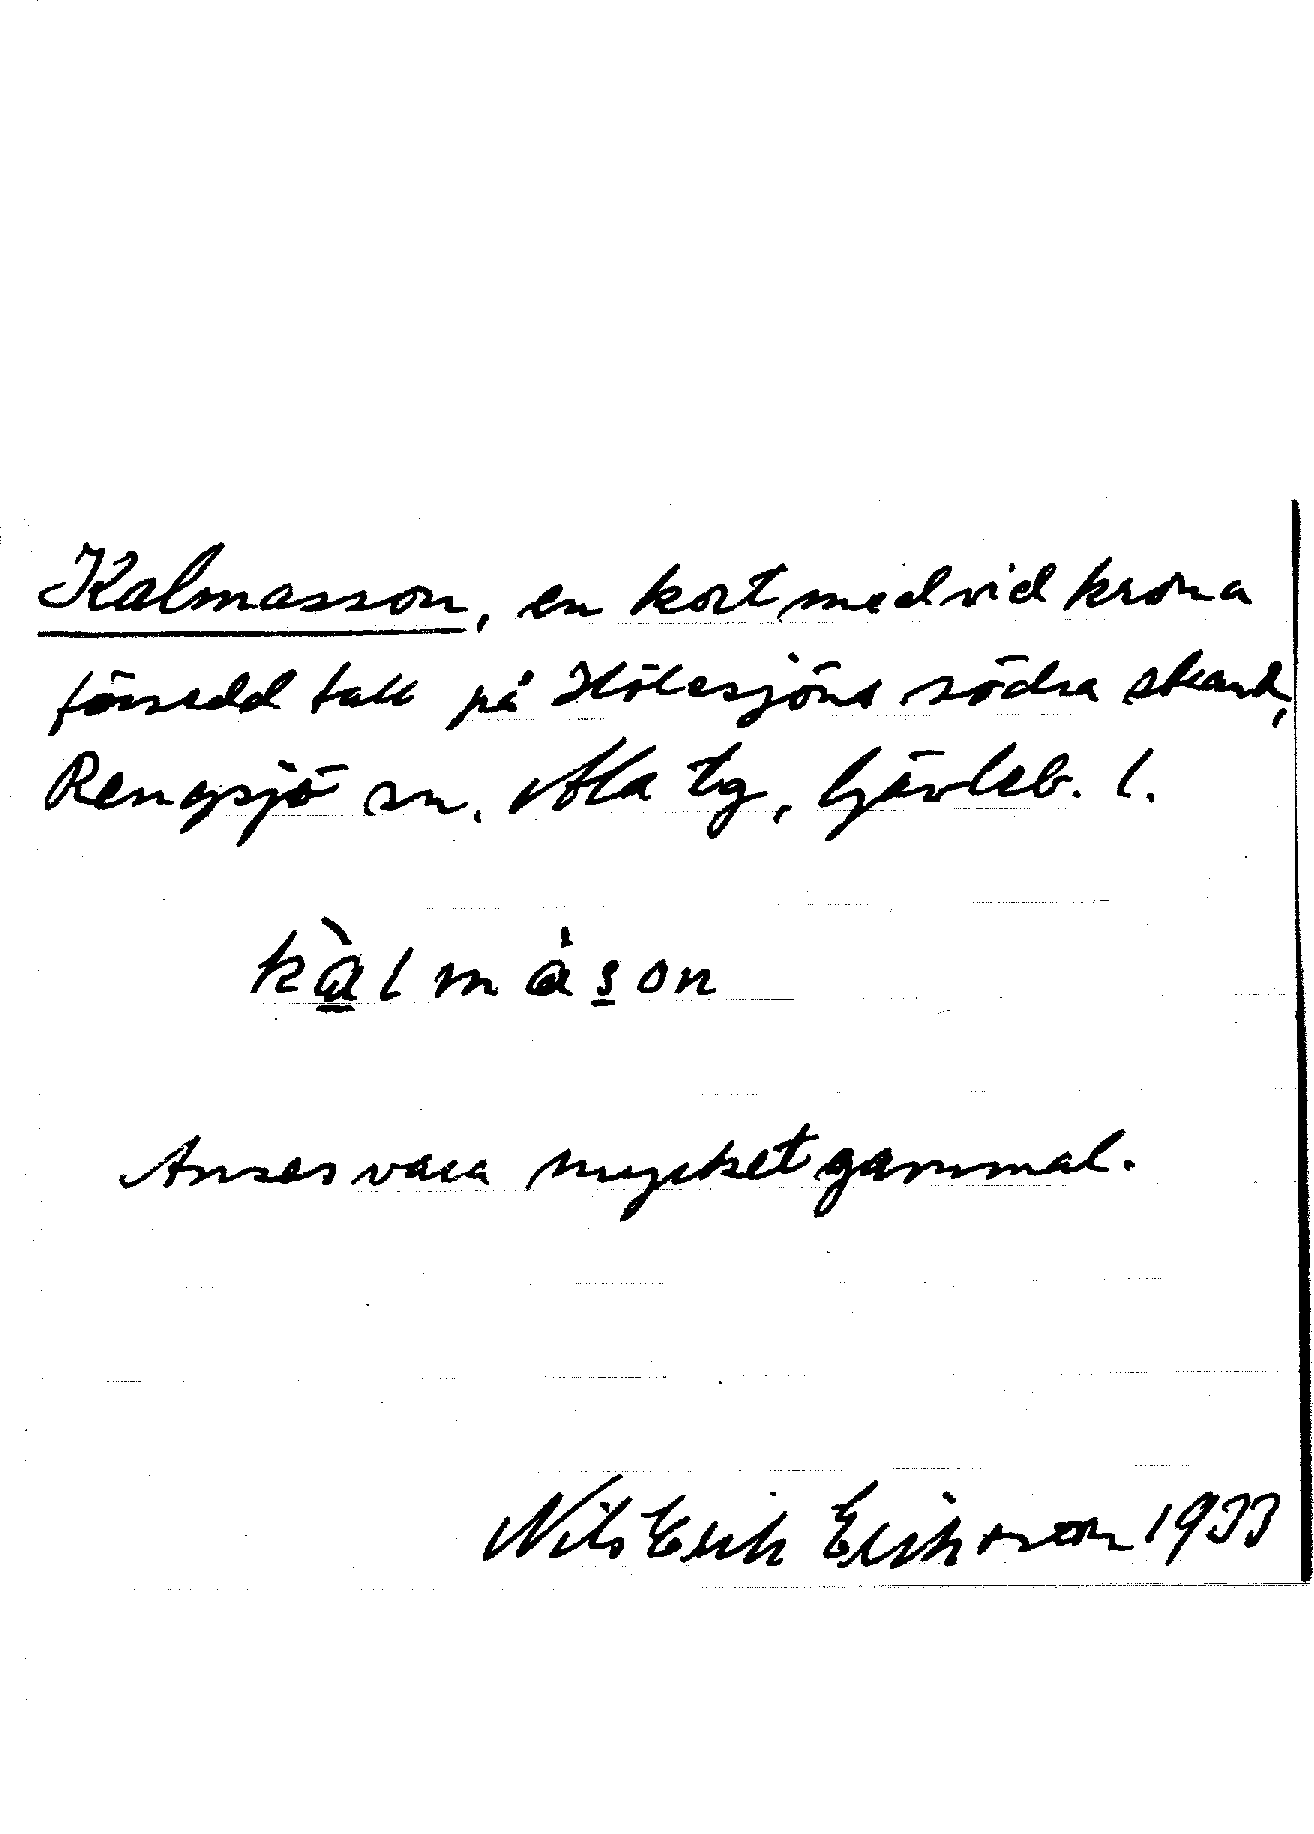 Kalmasson, en kort med vid krona
försedd tall på Hölesjöns södra strand,
Rengsjö sn. Ala tg, Gävleb. l.
kàlmåson
Anses vara mycket gammal.
Nils Erik Eriksson 1933